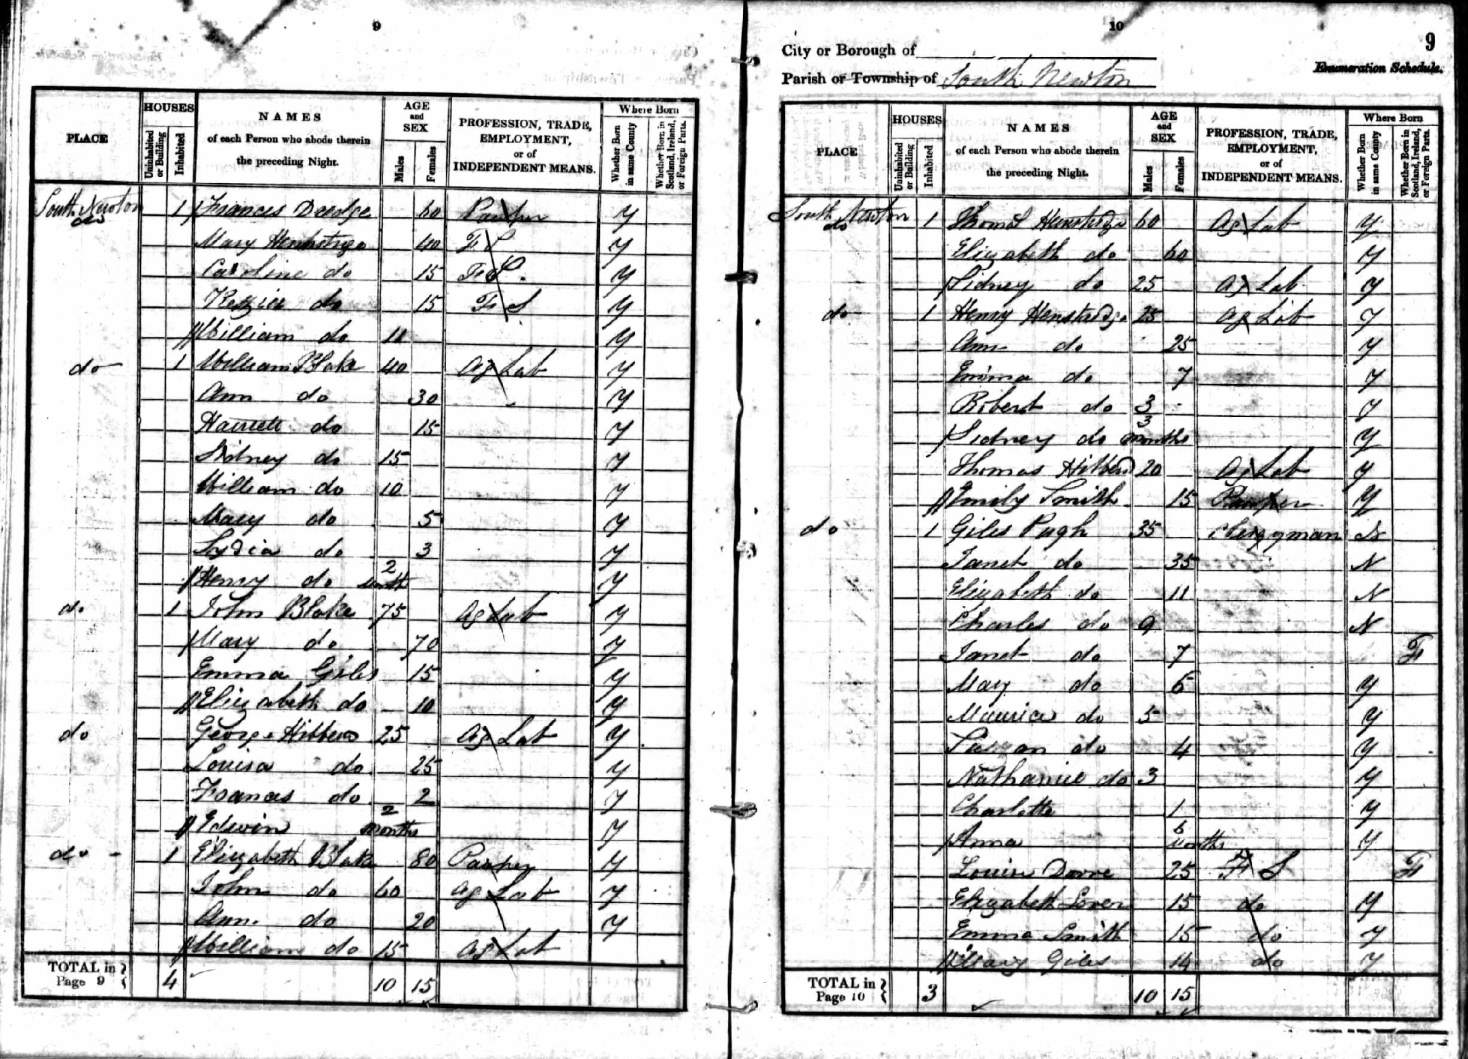 9
PLACE
HOUSES
Uninhabited or Building
Inhabited
NAMES
of each Person who abode therein
the preceding Night.
AGE and SEX
Males
Females
PROFESSION, TRADE,
EMPLOYMENT,
or of
INDEPENDENT MEANS.
Where Born
Whether Born in same County
Whether Born in Scotland, Ireland, or Foreign Parts.
South Newton 1 Frances 60 Pauper y
do Mary 40 F S y
Caroline do 15 F S y
do 15 F S y
William do 11 y
do 1 William Blake 40 Ag Lab y
Ann do 30 y
Harriett do 15 y
Sidney do 15 y
William do 10 y
Mary do 5 y
Lydia do 3 y
Henry do 2 month y
do 1 John Blake 75 Ag Lab y
Mary do 70 y
Emma Giles 15 y
Elizabeth do 10 y
do George 25 Ag Lab y
Louisa do 25 y
Frances do 2 y
Edwin 2 months y
do 1 Elizabeth Blake 80 Pauper y
John do 60 Ag Lab y
Ann do 20 y
William do 15 Ag Lab
TOTAL in Page 9 } 4 10 15
10
9
City or Borough of
Parish or Township of South Newton
Enumeration Schedule.
PLACE
HOUSES
Uninhabited or Building
Inhabited
NAMES
of each Person who abode therein
the preceding Night.
AGE and SEX
Males
Females
PROFESSION, TRADE,
EMPLOYMENT,
or of
INDEPENDENT MEANS.
Where Born
Whether Born in same County
Whether Born in Scotland, Ireland, or Foreign Parts.
South Newton 1 Thomas 60 Ag Lab y
do Elizabeth do 60 y
Sidney do 25 Ag Lab y
do 1 Henry 25 Ag Lab y
Ann do 25 y
Emma do 7 y
Robert do 3 y
Sidney do 3 months y
Thomas 20 Ag Lab y
Emily Smith 15 Pauper y
do 1 Giles Pugh 35 Clergyman N
Janet do 35 N
Elizabeth do 11 N
Charles do 9 N
Janet do 7 F
Mary do 6 y
Maurice do 5 y
do 4 y
do 3 y
Charlotte 1 y
Anna months y
Louisa 25 F S F
Elizabeth 15 do y
Emma Smith 15 do y
Mary Giles 14 do y
TOTAL in Page 10 } 3 10 15